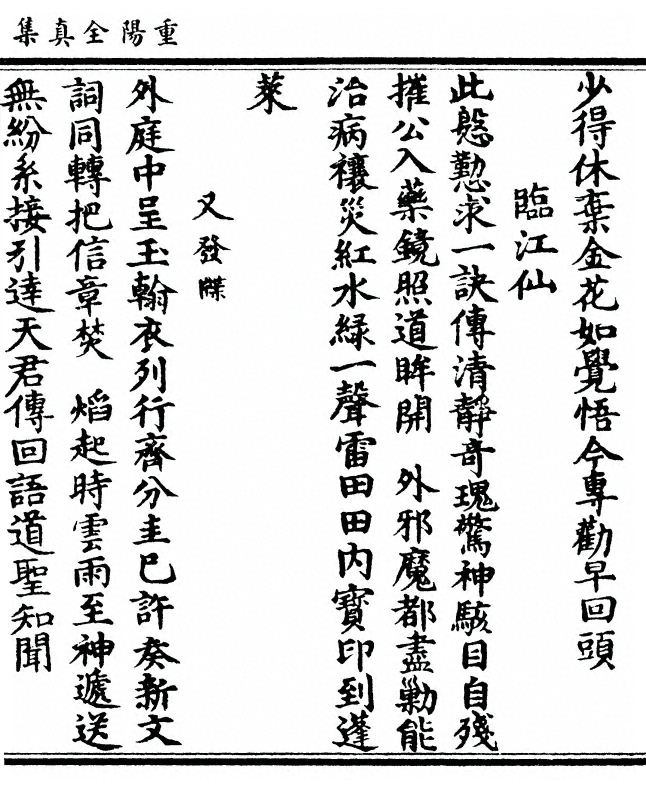 重陽全真集
少得休棄金花如覺悟今專勸早回頭
臨江仙
此慇懃求一訣傳清靜奇瑰驚神駭目自殘
摧公入藥鏡照道眸開　外邪魔都盡勦能
治病禳災紅水綠一聲雷田田內寶印到蓬
萊
又發牒
外庭中呈玉翰衣列行齊分圭巳許奏新文
詞同轉把信章焚　焰起時雲雨至神遞送
無紛紊接引達天君傳回語道聖知聞